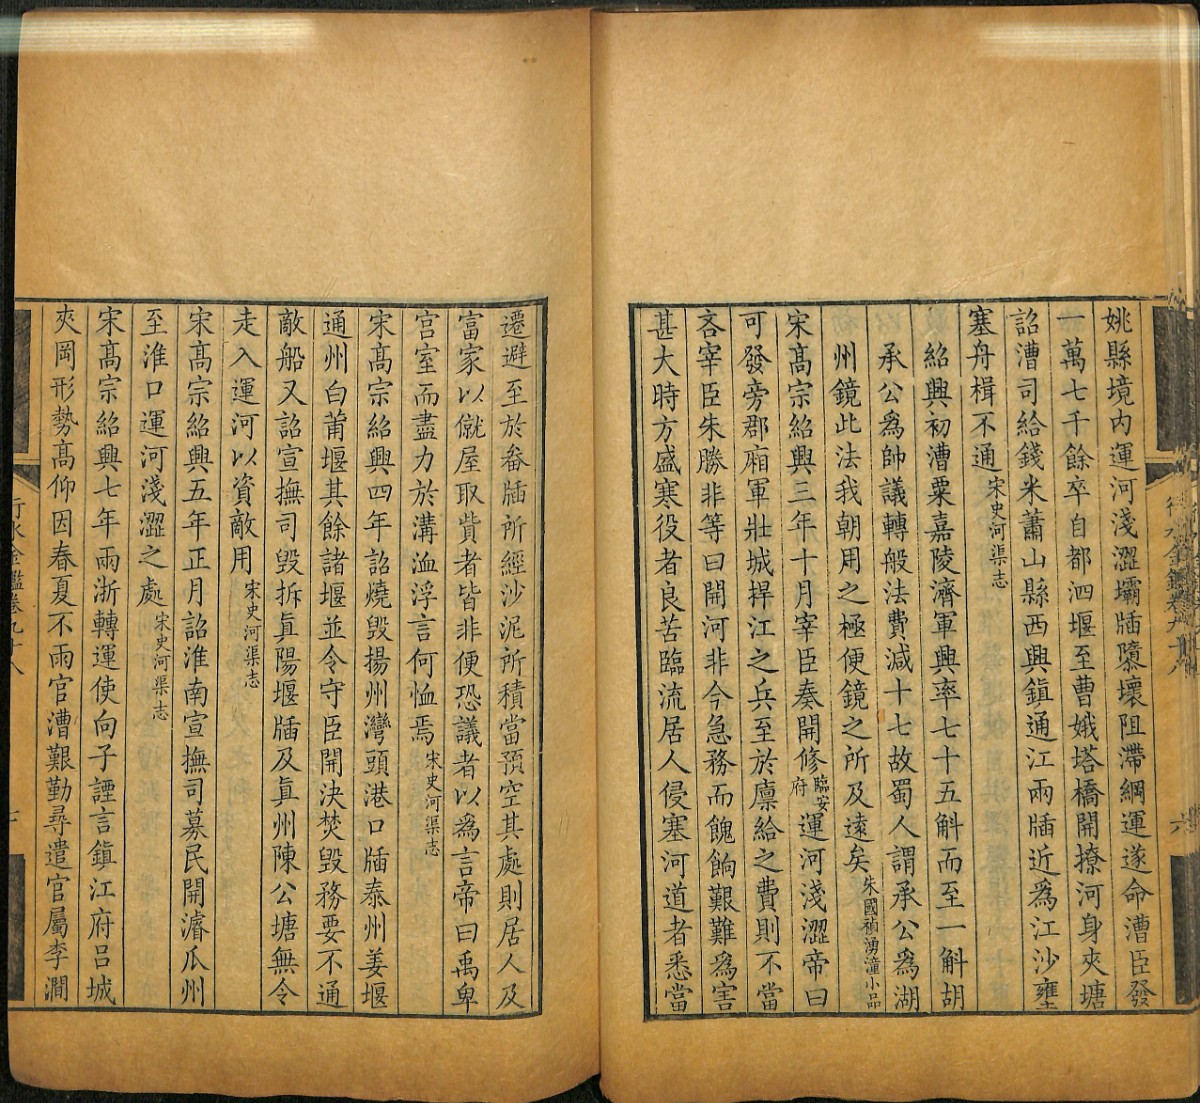 姚縣境内運河淺澀壩牐隳壞阻滯綱運遂命漕臣發
一萬七千餘卒自都泗堰至曹娥塔橋開撩河身夾塘
詔漕司給錢米蕭山縣西興鎮通江兩牐近爲江沙壅
塞舟楫不通宋史河渠志
紹興初漕粟嘉陵濟軍興率七十五斛而至一斛胡
承公爲帥議轉般法費減十七故蜀人謂承公爲湖
州鏡此法我朝用之極便鏡之所及遠矣朱國禎湧潼小品
宋高宗紹興三年十月宰臣奏開修臨安府運河淺澀帝曰
可發旁郡廂軍壯城捍江之兵至於廪給之費則不當
吝宰臣朱勝非等曰開河非今急務而餽餉艱難爲害
甚大時方盛寒役者良苦臨流居人侵塞河道者悉當
遷避至於畚牐所經沙泥所積當預空其處則居人及
富家以僦屋取貲者皆非便恐議者以爲言帝曰禹卑
宫室而盡力於溝洫浮言何恤焉宋史河渠志
宋高宗紹興四年詔燒毁揚州灣頭港口牐泰州姜堰
通州白莆堰其餘諸堰並令守臣開決焚毁務要不通
敵船又詔宣撫司毁拆眞陽堰牐及眞州陳公塘無令
走入運河以資敵用宋史河渠志
宋高宗紹興五年正月詔淮南宣撫司募民開濬瓜州
至淮口運河淺澀之處宋史河渠志
宋高宗紹興七年兩浙轉運使向子諲言鎮江府吕城
夾岡形勢高仰因春夏不雨官漕艱勤尋遣官屬李澗
行水金鑑卷九十八
七